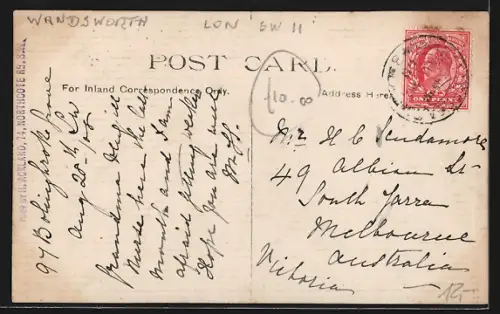 WANDSWORTH LON' SW 11'
POST CARD.
For Inland Correspondence Only.
Address Here
£10.00
ONE PENNY
ROWLAND, 74, NORTHCOTE RD. S.W.
97 Bolingbroke Grove
Aug 20th
Grandma
Nurse here the last
month and I am
afraid getting weaker
Hope you are well
Mr H C Scudamore
49 Albion St
South Yarra
Melbourne
Victoria Australia
12,-